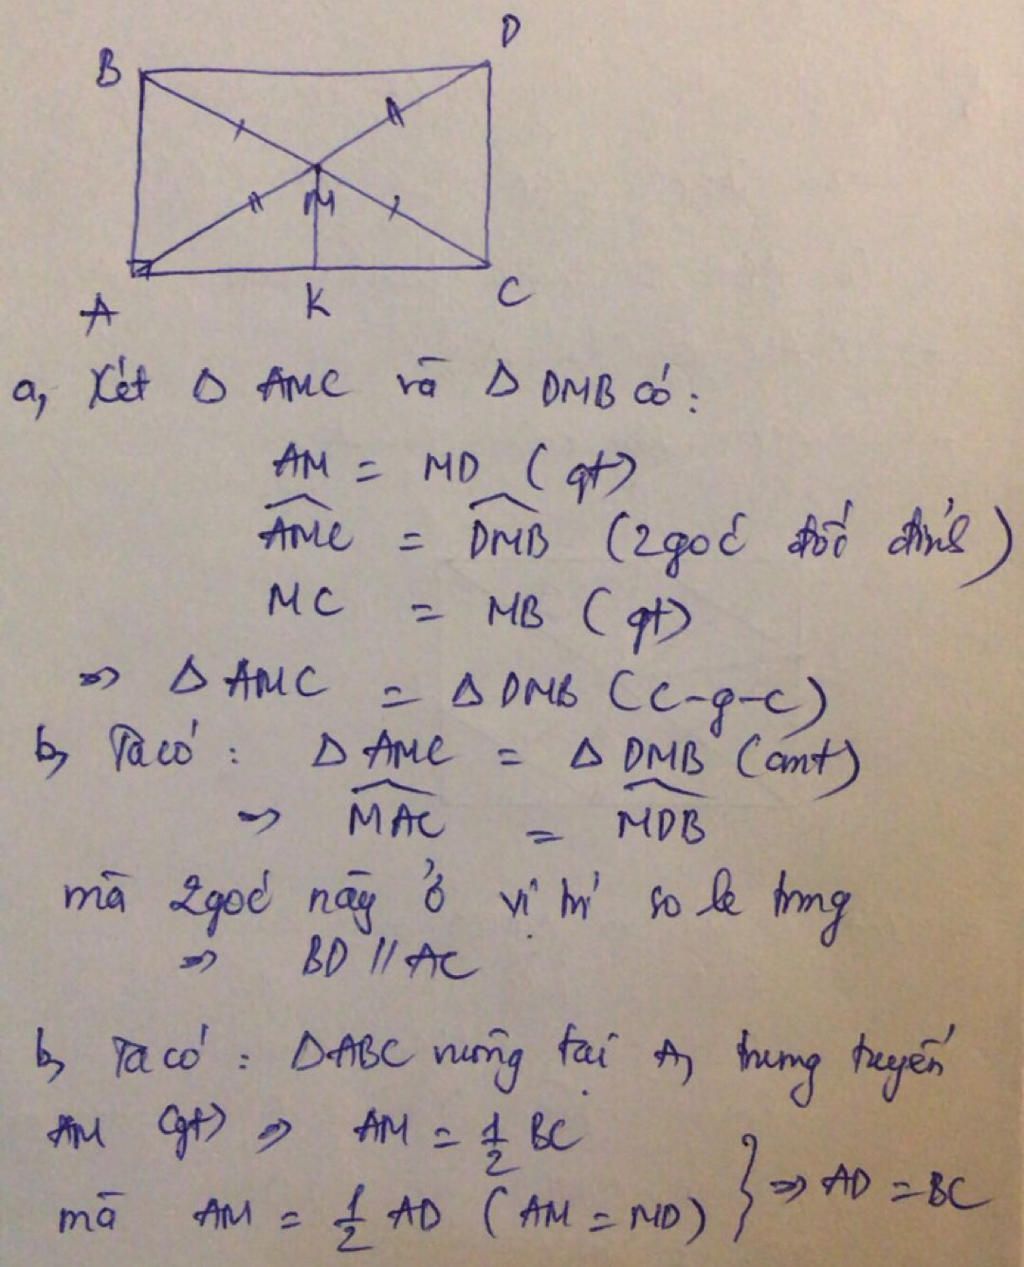 B D
M
A K C
a, Xét Δ AMC và Δ DMB có:
AM = MD (gt)
\widehat{AMC} = \widehat{DMB} (2 góc đối đỉnh)
MC = MB (gt)
=> Δ AMC = Δ DMB (c-g-c)
b, Ta có: Δ AMC = Δ DMB (cmt)
=> \widehat{MAC} = \widehat{MDB}
mà 2 góc này ở vị trí so le trong
=> BD // AC
b, Ta có: ΔABC vuông tại A, trung tuyến
AM (gt) => AM = \frac{1}{2} BC
mà AM = \frac{1}{2} AD (AM = MD) } => AD = BC